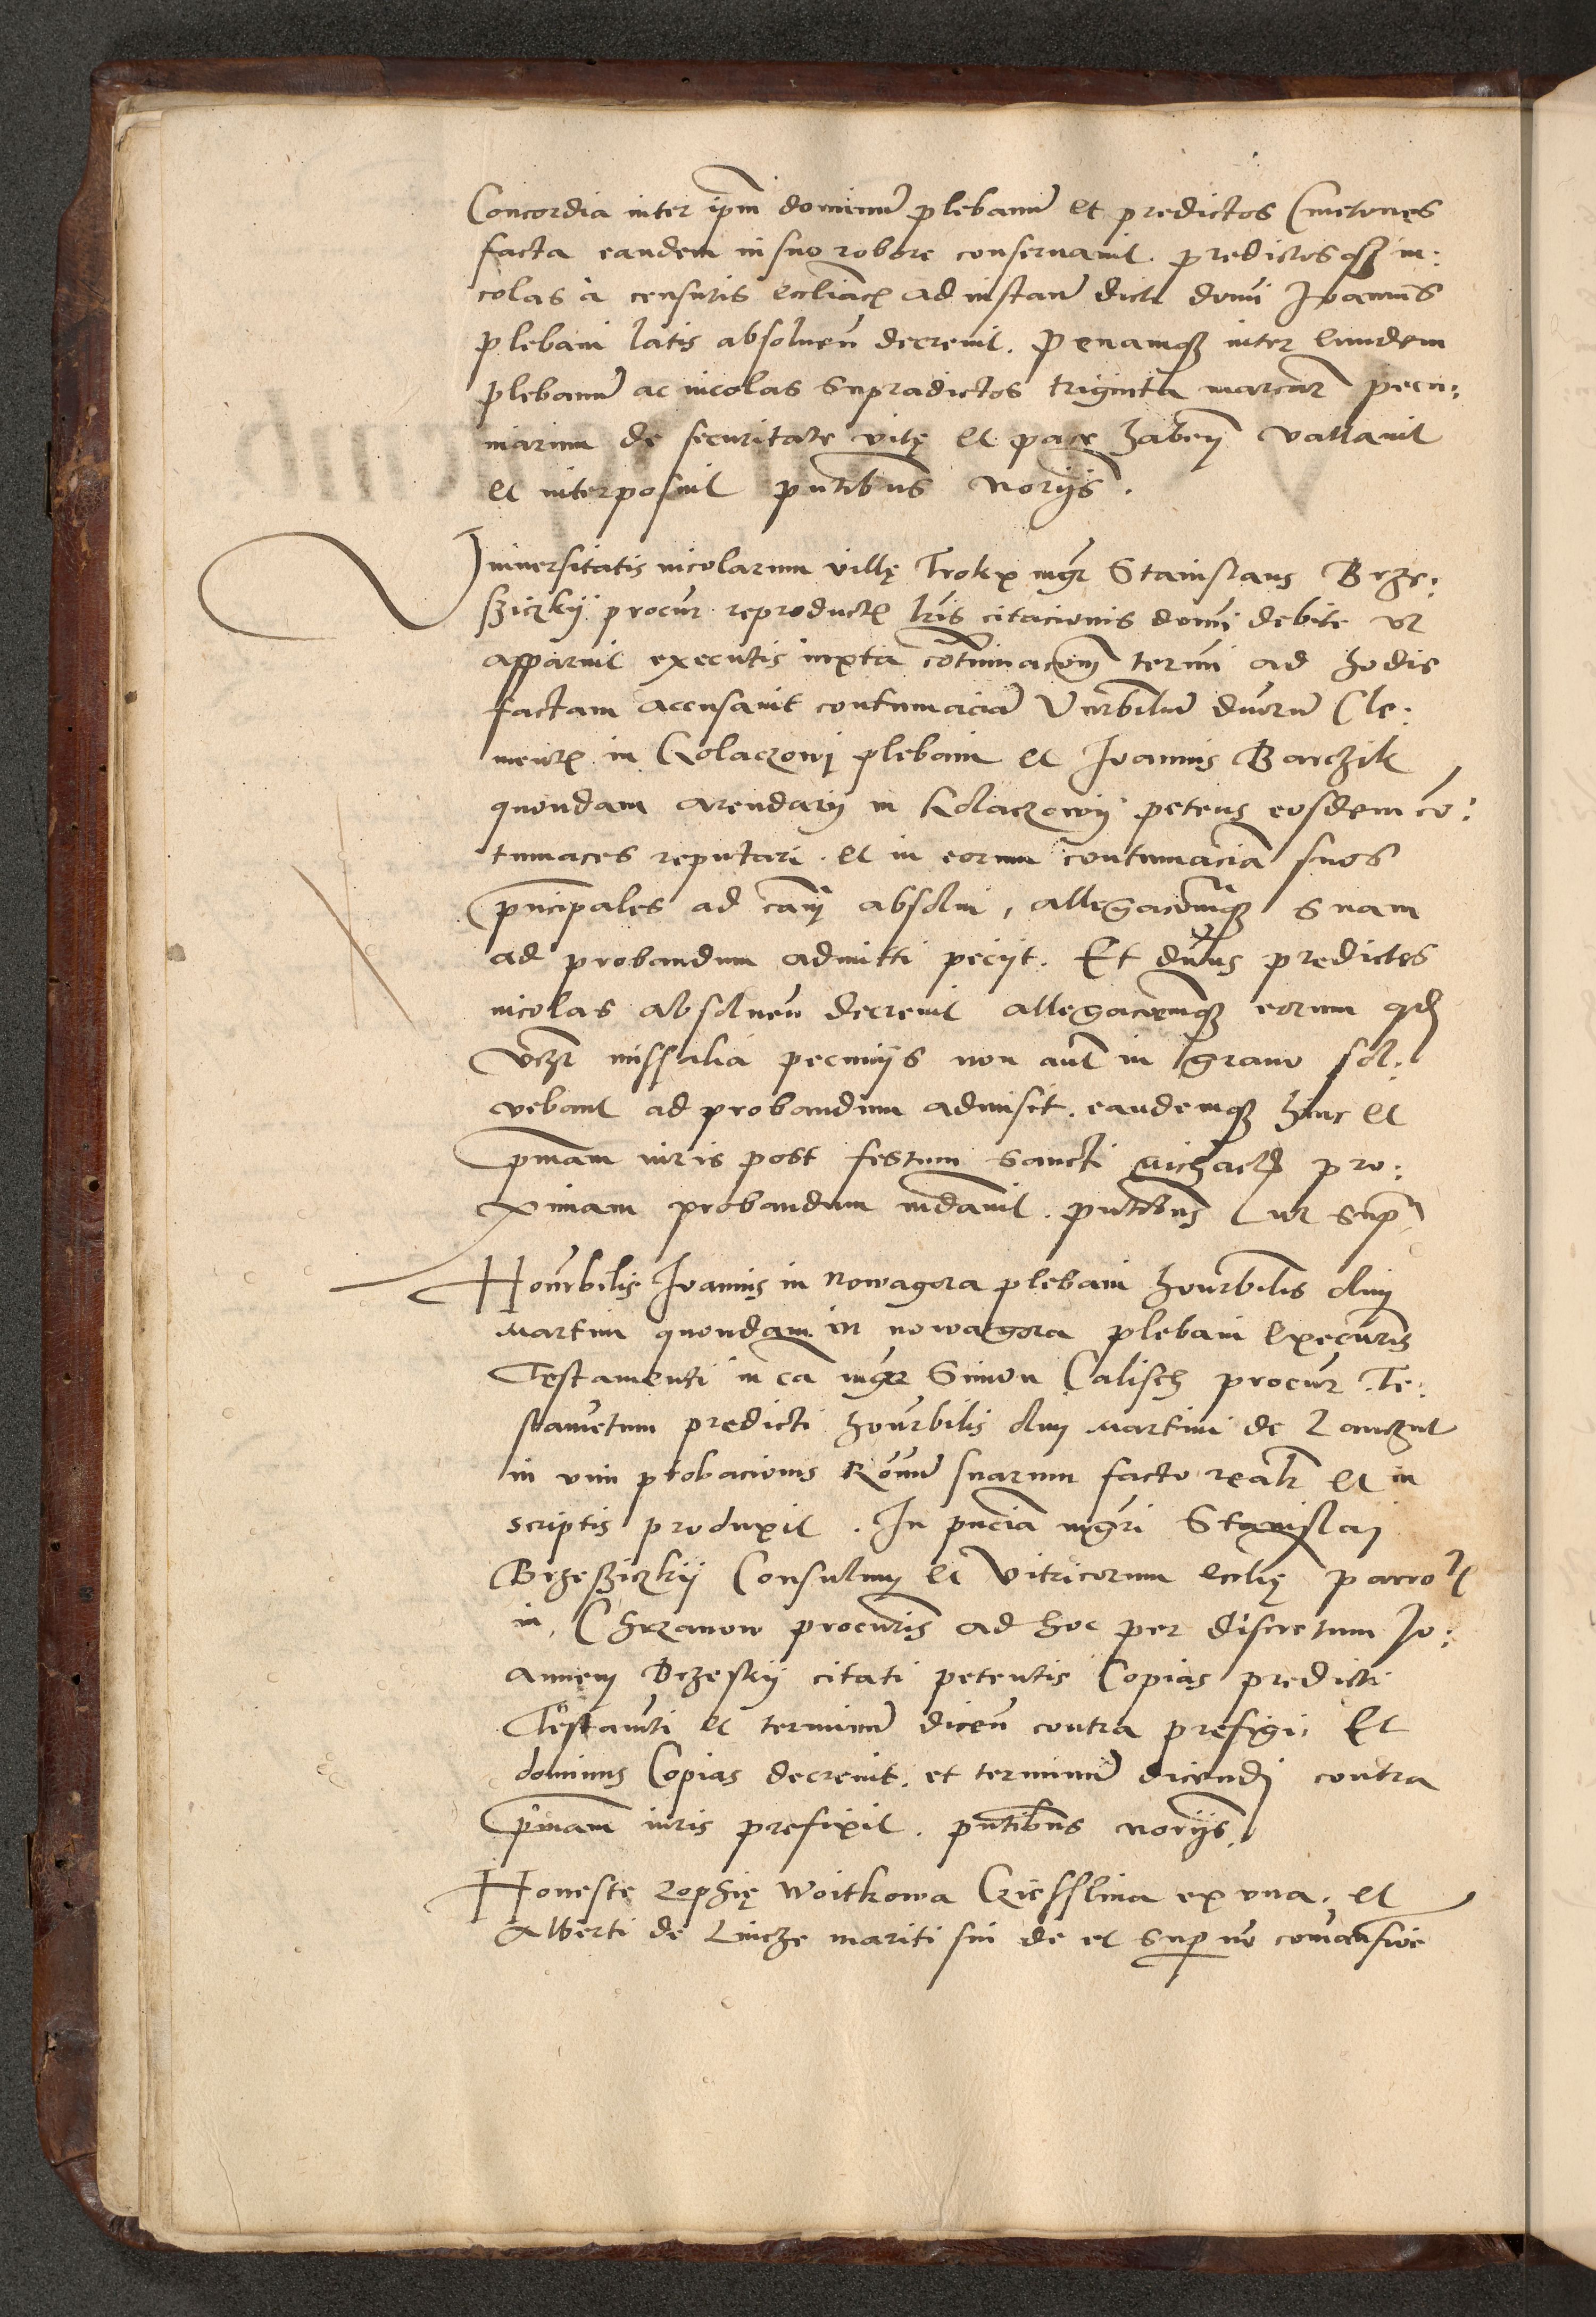 Concordia inter ipm̄ dominū plebanū et predictos Cmetones
facta eandem in suo robore conseruauit. predictosqȝ in:
colas à censuris eccliaēs ad instan̄ dicti domi Ioannis
plebani latis absoluen̄ decreuit. Penamqȝ inter eundem
plebanū ac incolas supradictos triginta marcar̄ pecu:
niarum de securitate vitę et pace haben̄ vallauit
et interposuit pn̄tibus norijs.
Vniuersitatis incolarum villę Trokx mgr̄ Stanislaus Brze:
sziczkij procur̄ reproductis lr̄is citacionis domi debite vt
apparuit executis iuxta cōtinuacōm termi ad hodie
factam accusauit contumaciā Venrbiliū dnorū Cle:
mentis in Kolaczowij plebani et Ioannis Barczik
quondam arendarij in Kolaczowij petens eosdem cō:
tumaces reputari. et in eorum contumaciā suos
pn̄cipales ad cām absolui, allegacōmqȝ suam
ad probandum admitti pecijt. Et dnus predictos
incolas absoluen̄ decreuit allegacōmqȝ eorum qd
vidȝ missalia pecunijs non aut̄ in grano sol:
vebant ad probandum admisit. eandemqȝ hinc et
pm̄am iuris post festum sancti Michaelis pro:
ximam probandum mdauit. pn̄tibus ut supͣ
Honrbilis Ioannis in Nowagora plebani honrbilis olim
Martini quondam in nowagora plebani executoris
Testamenti in ca mgr̄ Simon Calisch procur̄ Te:
stamētum predicti honrbilis olim Martini de Lanczut
in vim probacionis Rōnum suarum facto realr̄ et in
scriptis produxit. In pn̄cia mgri Stanislai
Brzesziczkij Consulum et Vitricorum ecclię parro
in Chrzanow procuris ad hoc per discretum Jo:
annem Brzeskij citati petentis Copias predicti
Testamti et terminū dicen̄ contra prefigi. Et
dominus Copias decreuit. et terminū dicendi contra
pm̄am iuris prefixit. pn̄tibus norijs.
Honeste Zophię Woitkowa ex vna. et
Alberti de Lincze mariti sui de et sup nō